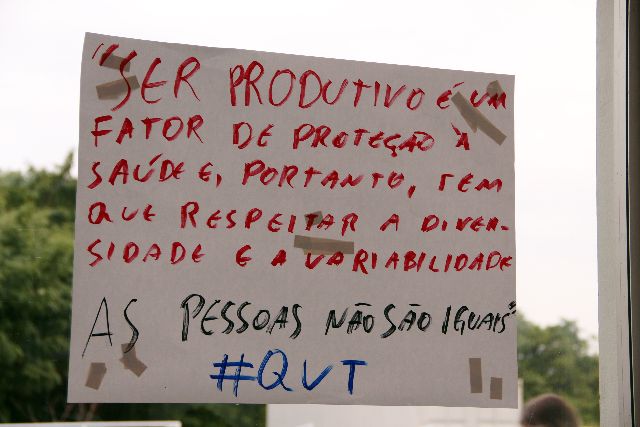 "SER PRODUTIVO É UM
FATOR DE PROTEÇÃO À
SAÚDE E, PORTANTO, TEM
QUE RESPEITAR A DIVER-
SIDADE E A VARIABILIDADE
AS PESSOAS NÃO SÃO IGUAIS"
#QVT